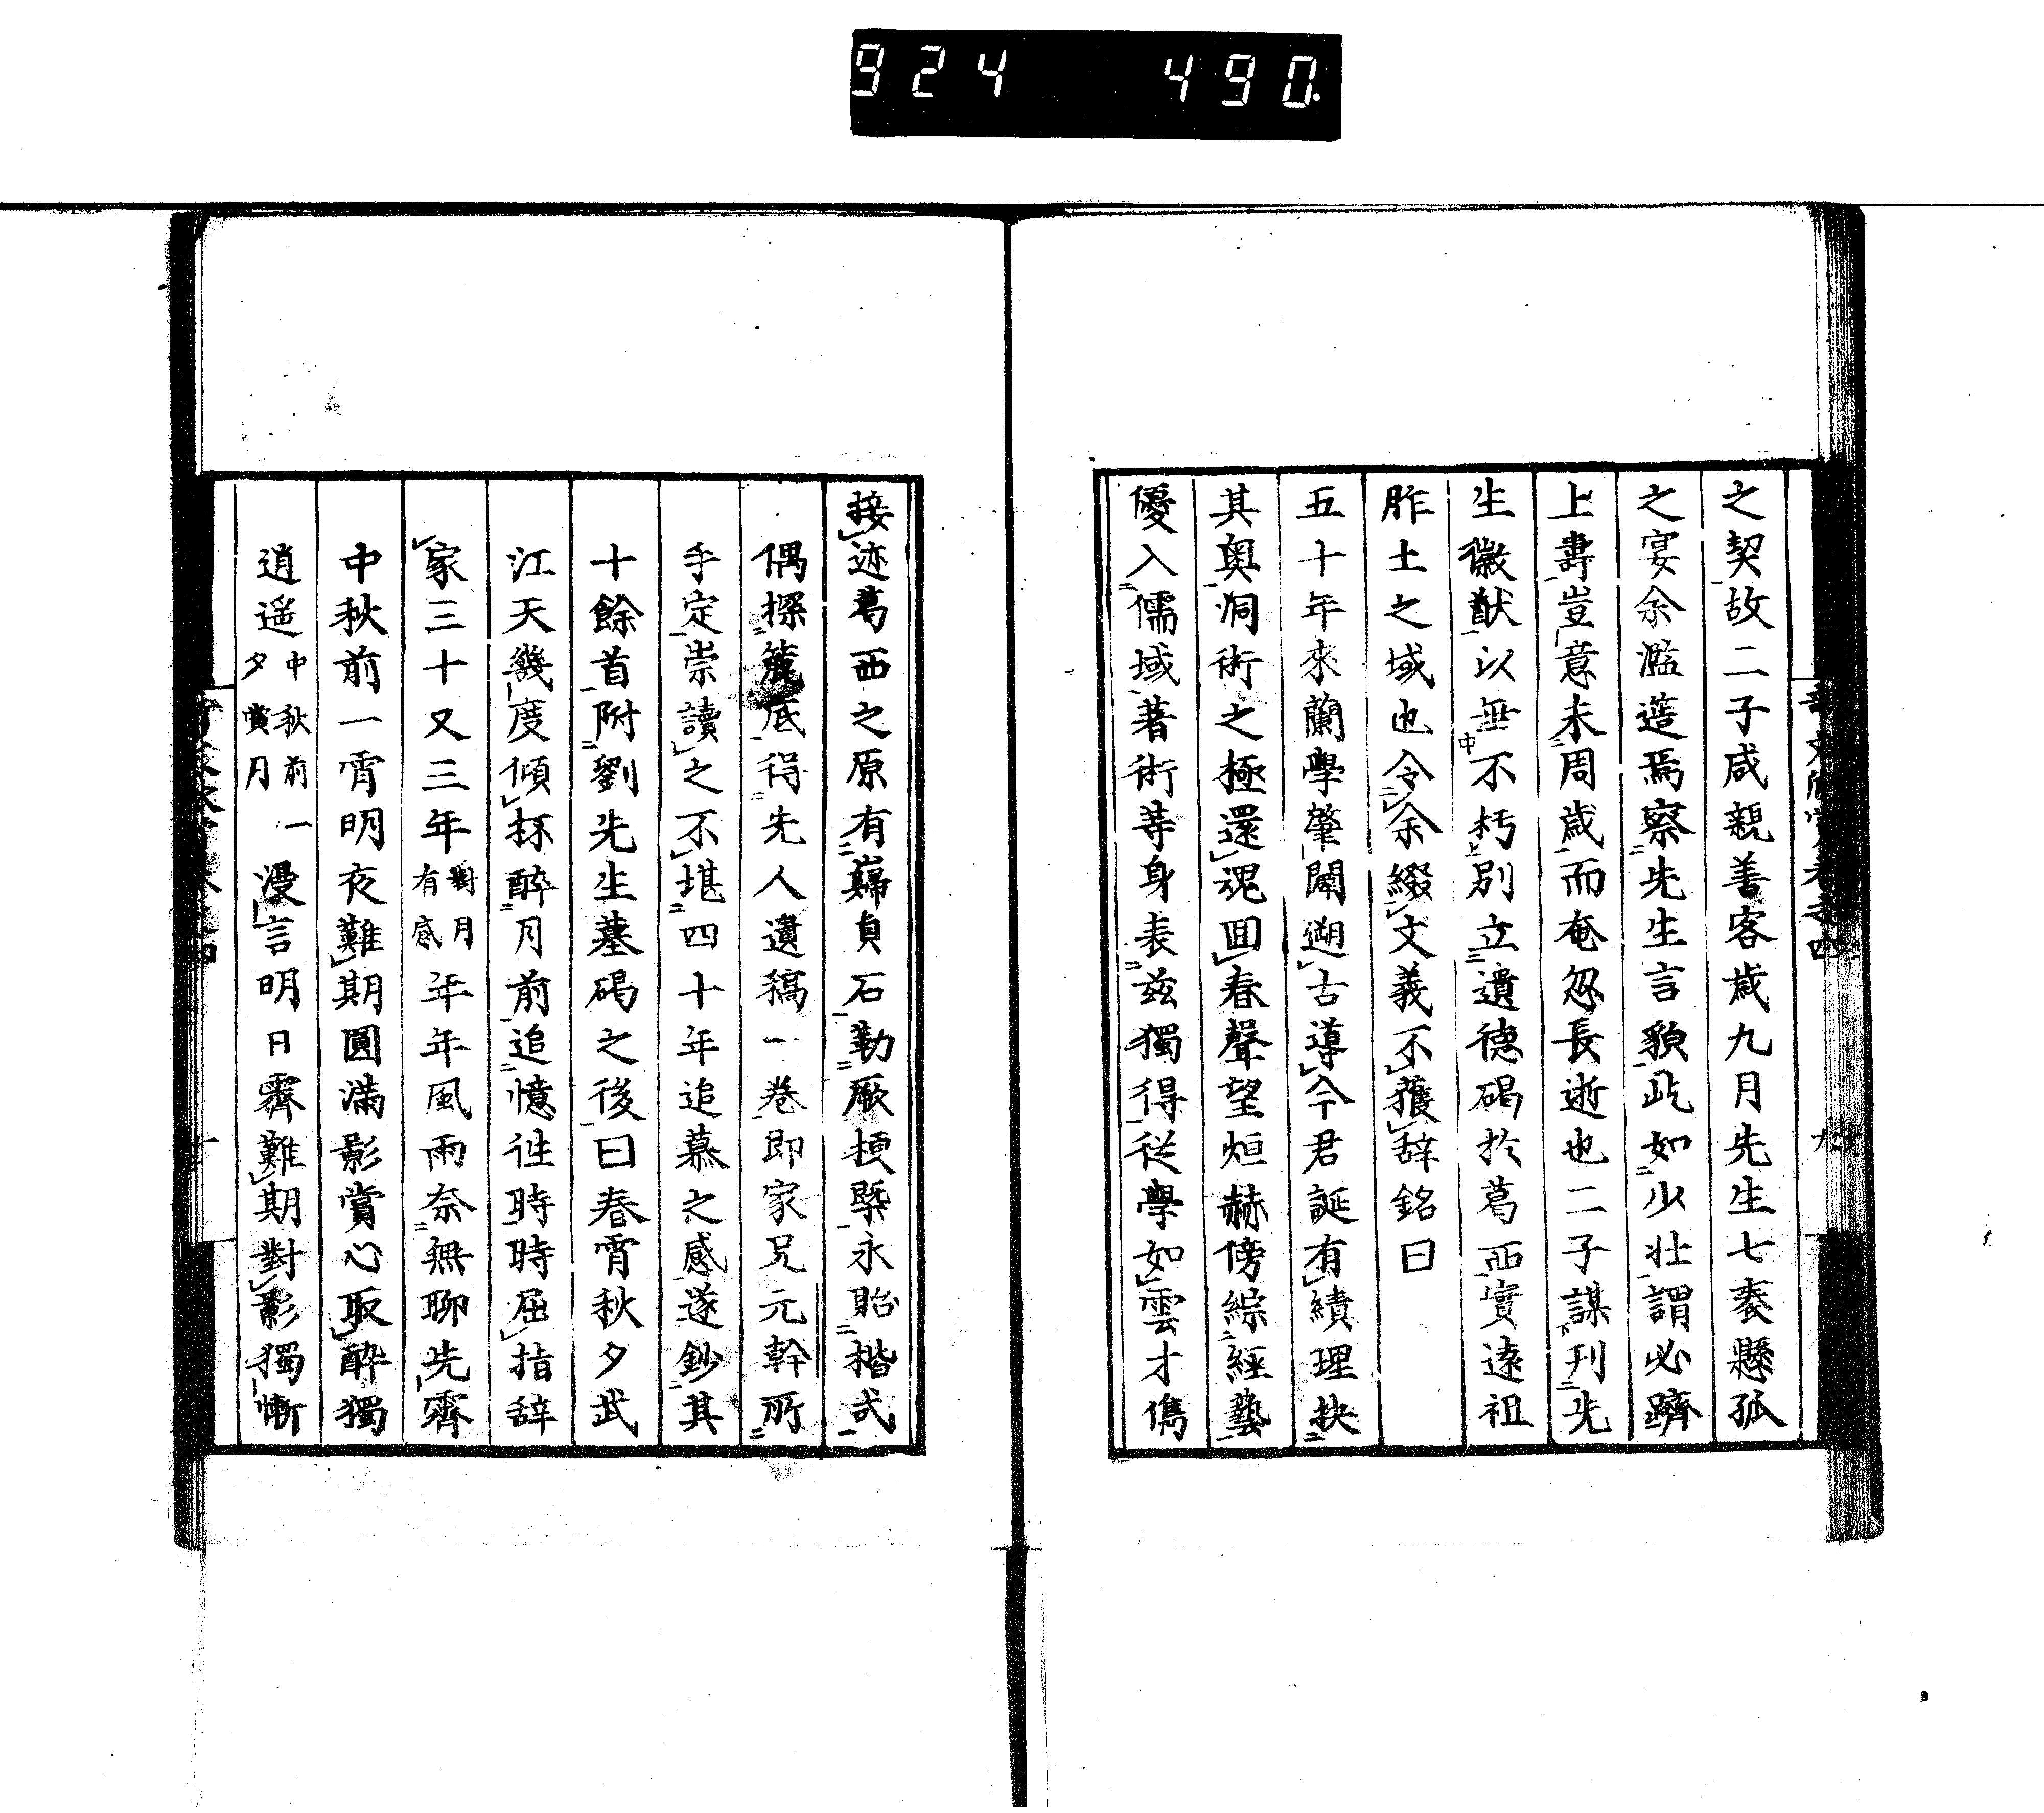 924 490.
之契故二子咸親善客歳九月先生七袠懸弧
之宴余濫造焉察先生言貌此如少壮謂必躋
上壽豈意未周歳而奄忽長逝也二子謀刊先
生徽猷以垂不朽別立遺德碣於葛西實遠祖
胙土之域也令余綴文義不獲辞銘曰
五十年來蘭學肇闢遡古導今君誕有績理抉
其奥洞術之極還魂回春聲望烜赫傍綜經藝
優入儒域著術等身表茲獨得從學如雲才儁
接迹葛西之原有巋貞石勒厥梗槩永貽楷式
偶探簏底得先人遺稿一卷即家兄元幹所
手定崇讀之不堪四十年追慕之感遂鈔其
十餘首附劉先生墓碣之後曰春宵秋夕武
江天幾度傾抔醉月前追憶徃時時屈指辞
家三十又三年對月有感年年風雨奈無聊先霽
中秋前一宵明夜難期圓滿影賞心取醉獨
逍遥中秋前一夕賞月漫言明日霽難期對影獨慚